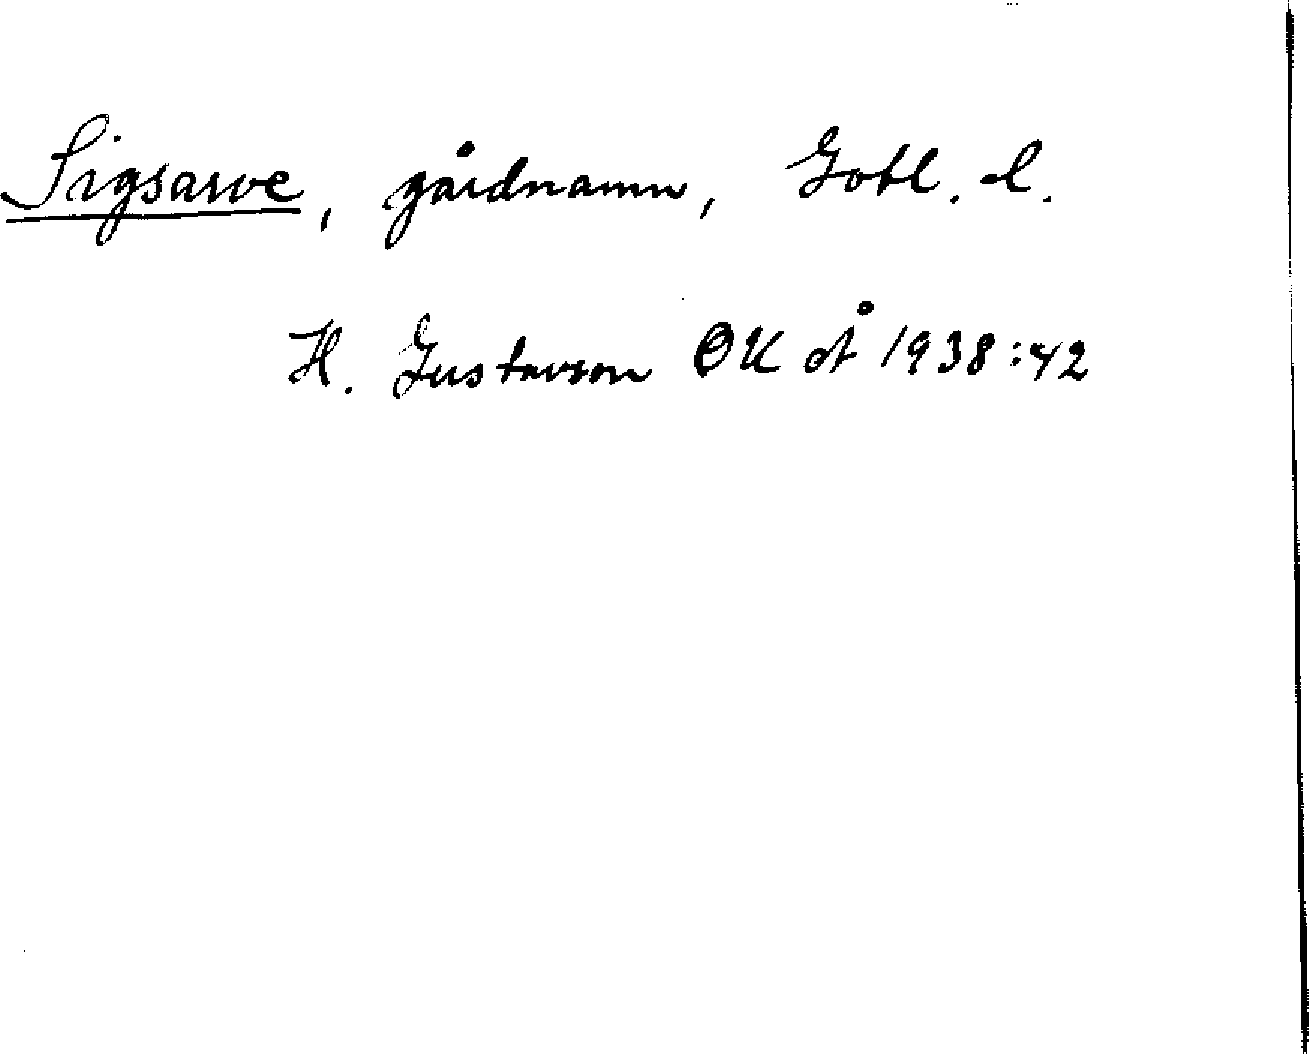 Sigsarve, gårdnamn, Gotl. l.
H. Gustavson OK Å 1938:42